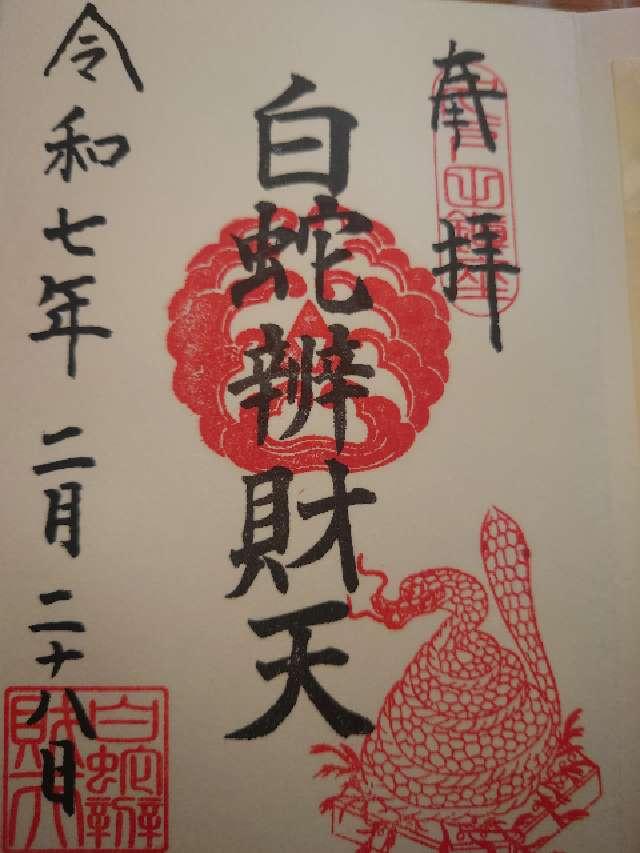 奉拝
白蛇辨財天
令和七年 二月 二十八日
白蛇辨
財天